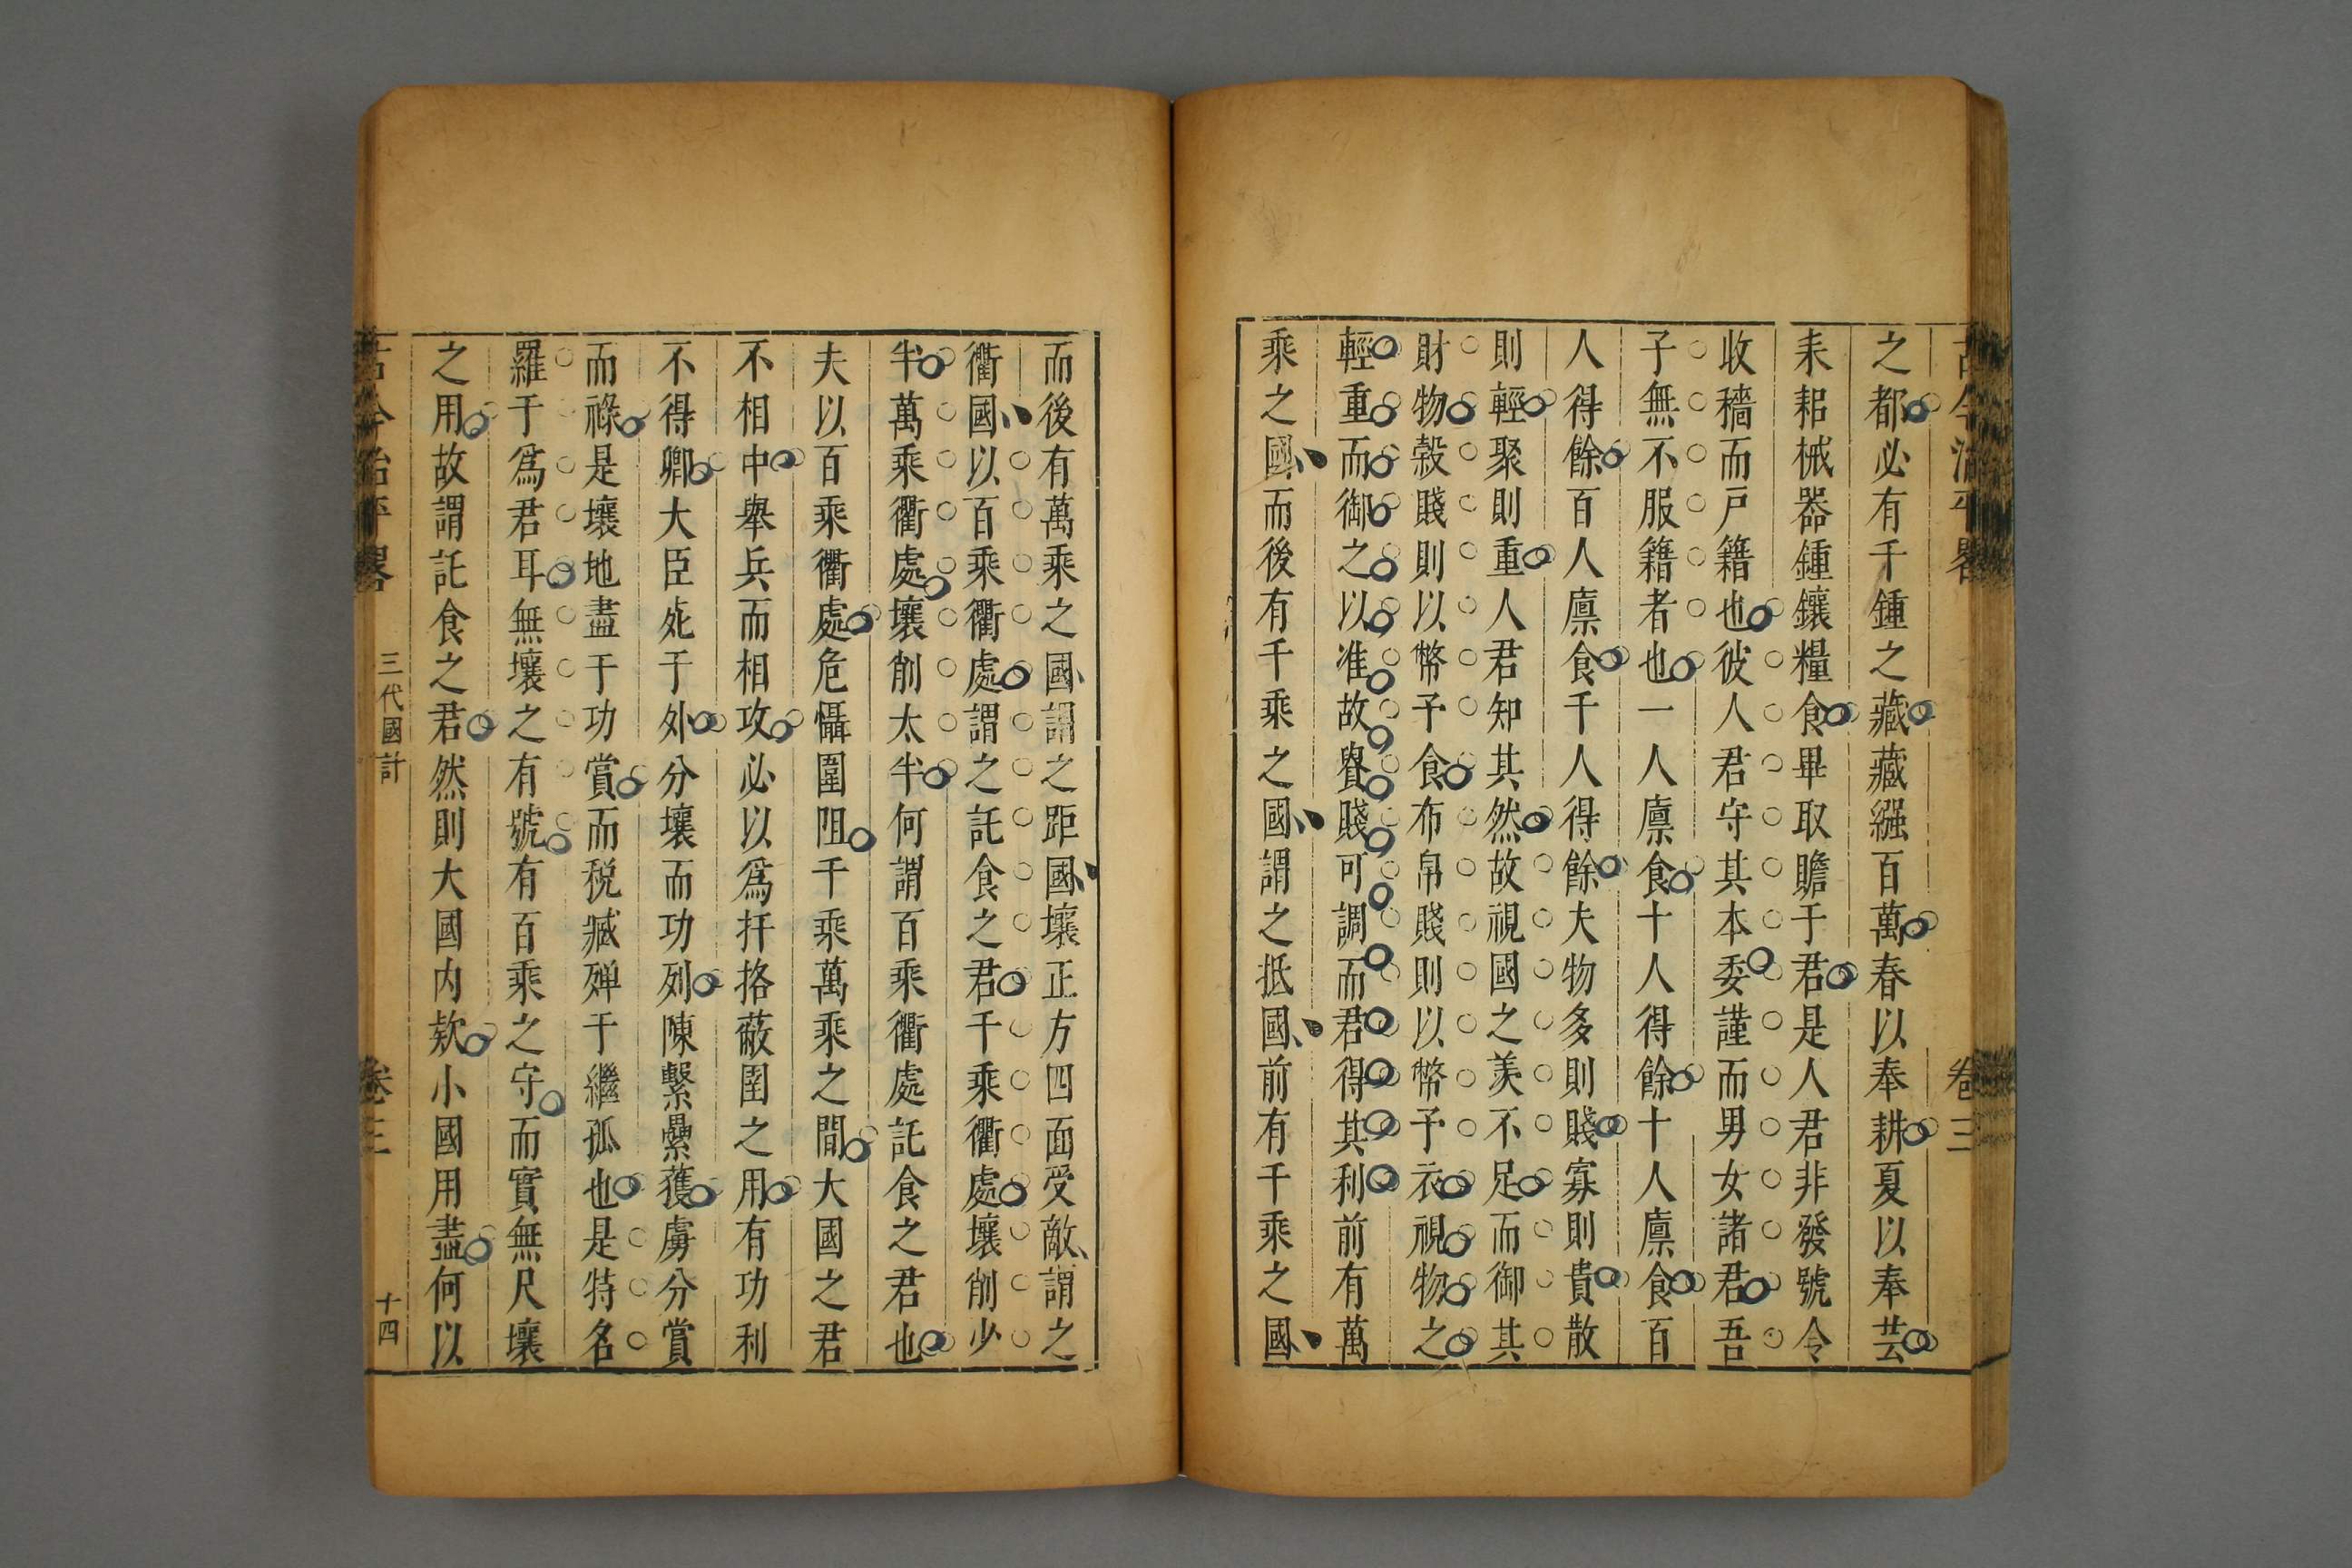 古今治平畧 卷三
之都必有千鍾之藏藏繦百萬春以奉耕夏以奉芸
耒耜械器鍾鑲糧食畢取贍于君是人君非發號令
收穡而戸籍也彼人君守其本委謹而男女諸君吾
子無不服籍者也一人廪食十人得餘十人廪食百
人得餘百人廪食千人得餘夫物多則賤寡則貴散
則輕聚則重人君知其然故視國之羨不足而御其
財物穀賤則以幣予食布帛賤則以幣予衣視物之
輕重而御之以准故貴賤可調而君得其利前有萬
乘之國而後有千乘之國謂之抵國前有千乘之國
而後有萬乘之國謂之距國壤正方四面受敵謂之
衢國以百乘衢處謂之託食之君千乘衢處壤削少
半萬乘衢處壤削太半何謂百乘衢處託食之君也
夫以百乘衢處危懾圍阻千乘萬乘之間大國之君
不相中舉兵而相攻必以為扞挌蔽圉之用有功利
不得卿大臣死于外分壤而功列陳繫纍獲虜分賞
而祿是壤地盡于功賞而税臧殫于繼孤也是特名
羅于為君耳無壤之有號有百乘之守而實無尺壤
之用故謂託食之君然則大國内欵小國用盡何以
古今治平畧 三代國計 卷三 十四